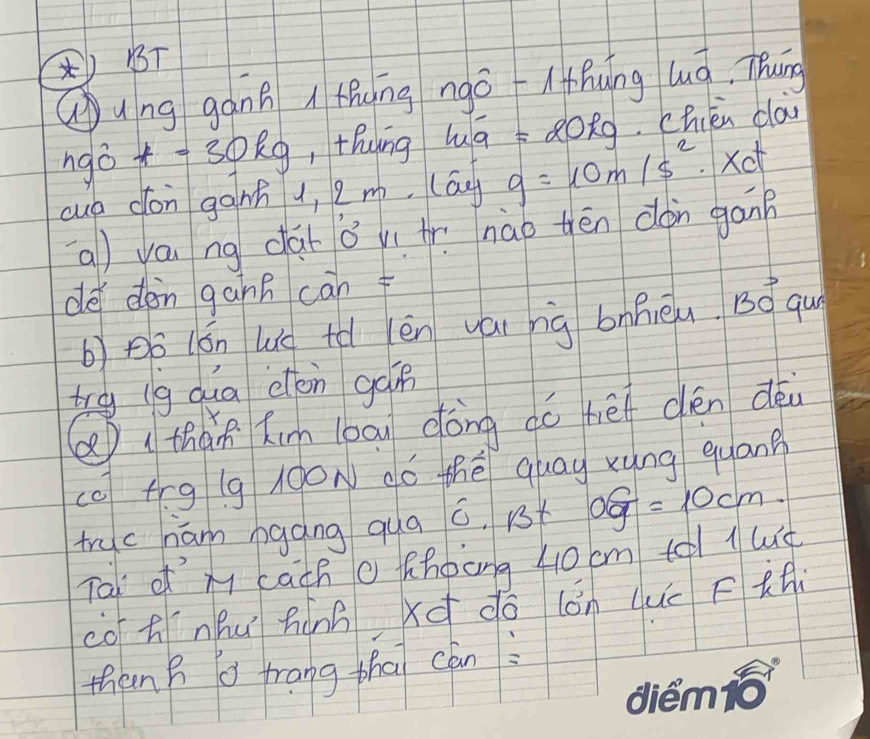 *) BT
① 1 ng gánh 1 thúng ngô - 1 thúng lúa. Thúng
ngô = 30kg, thúng lúa = 20kg. Chiều dài
của đòn gánh 1,2m. Lấy g = 10m/s². Xđ
a) vai ng đặt ở vị trí nào trên đòn gánh
để đòn gánh cân =
b) Độ lớn lực td lên vai ng bnhiêu. Bỏ qua
trg lg của đòn gánh
② 1 thanh kim loại đồng có tiết diện đều
có trg lg 100N có thể quay xung quanh
trục nằm ngang qua O. Bt OG = 10cm.
Tại đ' M cách O khoảng 40cm td 1 lực
có h' như hình Xđ độ lớn lực F khi
thanh ở trạng thái cân =
điểm10